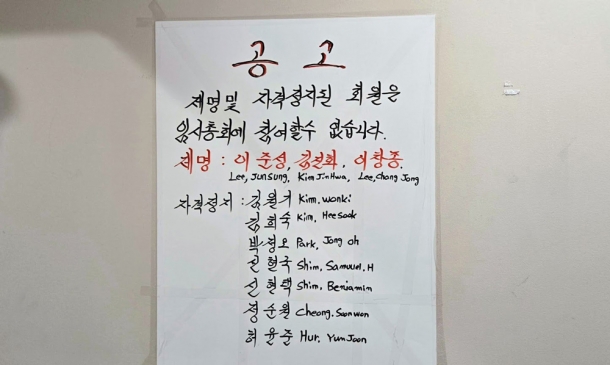 공 고
제명 및 자격정지된 회원은
임시총회에 참여할수 없습니다.
제명 : 이준성, 김진화, 이창종.
Lee, JunSung, Kim JinHwa, Lee, Chang Jong
자격정지 : 김원기 Kim, wonki
김희숙 Kim, Hee Sook
박정오 Park, Jong oh
심현국 Shim, Samuel, H
심현택 Shim, Benjamin
정순원 Cheong, Soon won
허윤준 Hur, Yun Joon